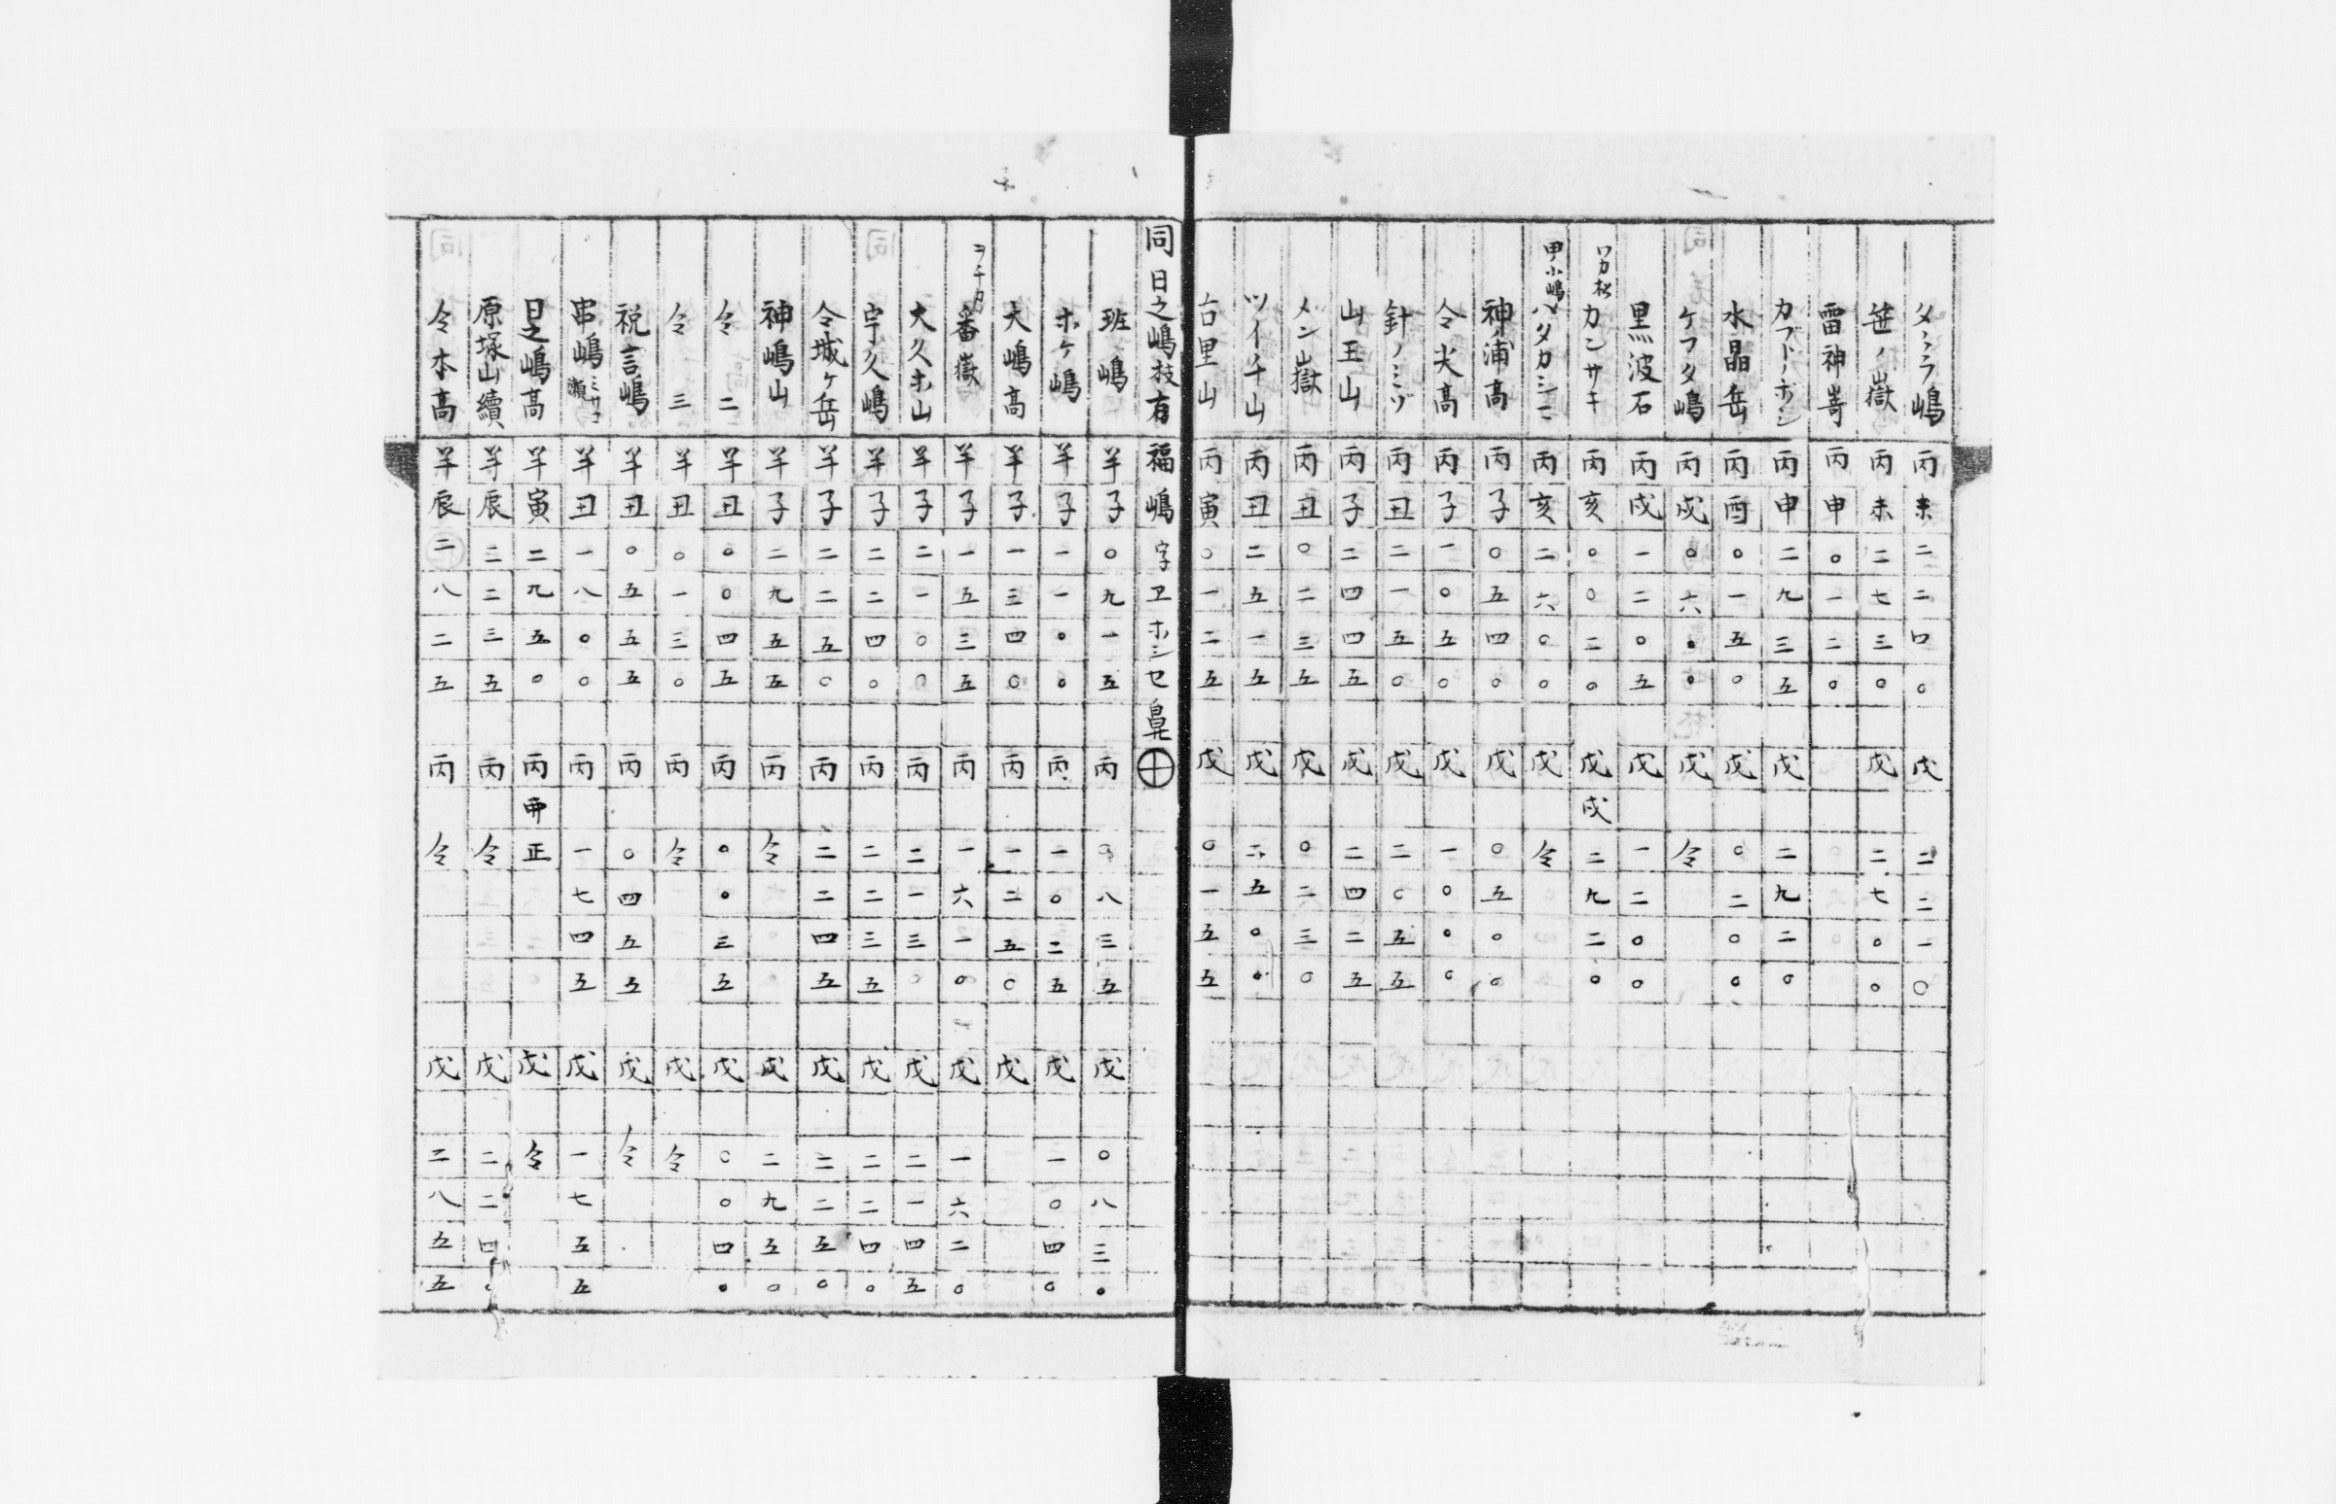 タヽラ嶋 丙 未 二 二 口 〇 戊 二 二 一 〇
笹ノ嶽 丙 未 二 七 三 〇 戊 二 七 〇 〇
雷神嵜 丙 申 〇 一 二 〇
カブトノボシ 丙 申 二 九 三 五 戊 二 九 二 〇
水晶岳 丙 酉 〇 一 五 〇 戊 〇 二 〇 〇
ケフタ嶋 丙 戌 〇 六 〇 〇 戊 仝
黒波石 丙 戌 一 二 〇 五 戊 一 二 〇 〇
ワカ松 カンサキ 丙 亥 〇 〇 二 〇 戊 戌 二 九 二 〇
甲小嶋 ハタカシマ 丙 亥 二 六 〇 〇 戊 仝
神ノ浦高 丙 子 〇 五 四 〇 戊 〇 五 〇 〇
仝尖高 丙 子 一 〇 五 〇 戊 一 〇 〇 〇
針ノミゾ 丙 丑 二 一 五 〇 戊 二 〇 五 五
山王山 丙 子 二 四 四 五 戊 二 四 二 五
メン嶽 丙 丑 〇 二 三 五 戊 〇 二 三 〇
ツイチ山 丙 丑 二 五 一 五 戊 二 五 〇 〇
古里山 丙 寅 〇 一 二 五 戊 〇 一 五 五
同日之嶋枝有福嶋字ヱホシセ鼻
班嶋 羊 子 〇 九 一 五 丙 〇 八 三 五 戊 〇 八 三 〇
ホケ嶋 羊 子 一 一 〇 〇 丙 一 〇 二 五 戊 一 〇 四 〇
大嶋高 羊 子 一 三 四 〇 丙 一 二 五 〇 戊
ヲチカ 番嶽 羊 子 一 五 三 五 丙 一 六 一 〇 戊 一 六 二 〇
大久ホ山 羊 子 二 一 〇 〇 丙 二 一 三 〇 戊 二 一 四 五
宇久嶋 羊 子 二 二 四 〇 丙 二 二 三 五 戊 二 二 四 〇
仝城ケ岳 羊 子 二 二 五 〇 丙 二 二 四 五 戊 二 二 五 〇
神嶋山 羊 子 二 九 五 五 丙 仝 戊 二 九 五 〇
仝 二 羊 丑 〇 〇 四 五 丙 〇 〇 三 五 戊 〇 〇 四 〇
仝 三 羊 丑 〇 一 三 〇 丙 仝 戊 仝
祝言嶋 羊 丑 〇 五 五 五 丙 〇 四 五 五 戊 仝
串嶋 ミサコ瀬 羊 丑 一 八 〇 〇 丙 一 七 四 五 戊 一 七 五 五
日之嶋高 羊 寅 二 九 五 〇 丙 正 戊 仝
原塚山續 羊 辰 二 二 三 五 丙 仝 戊 二 二 四 〇
仝本高 羊 辰 二 八 二 五 丙 仝 戊 二 八 五 五